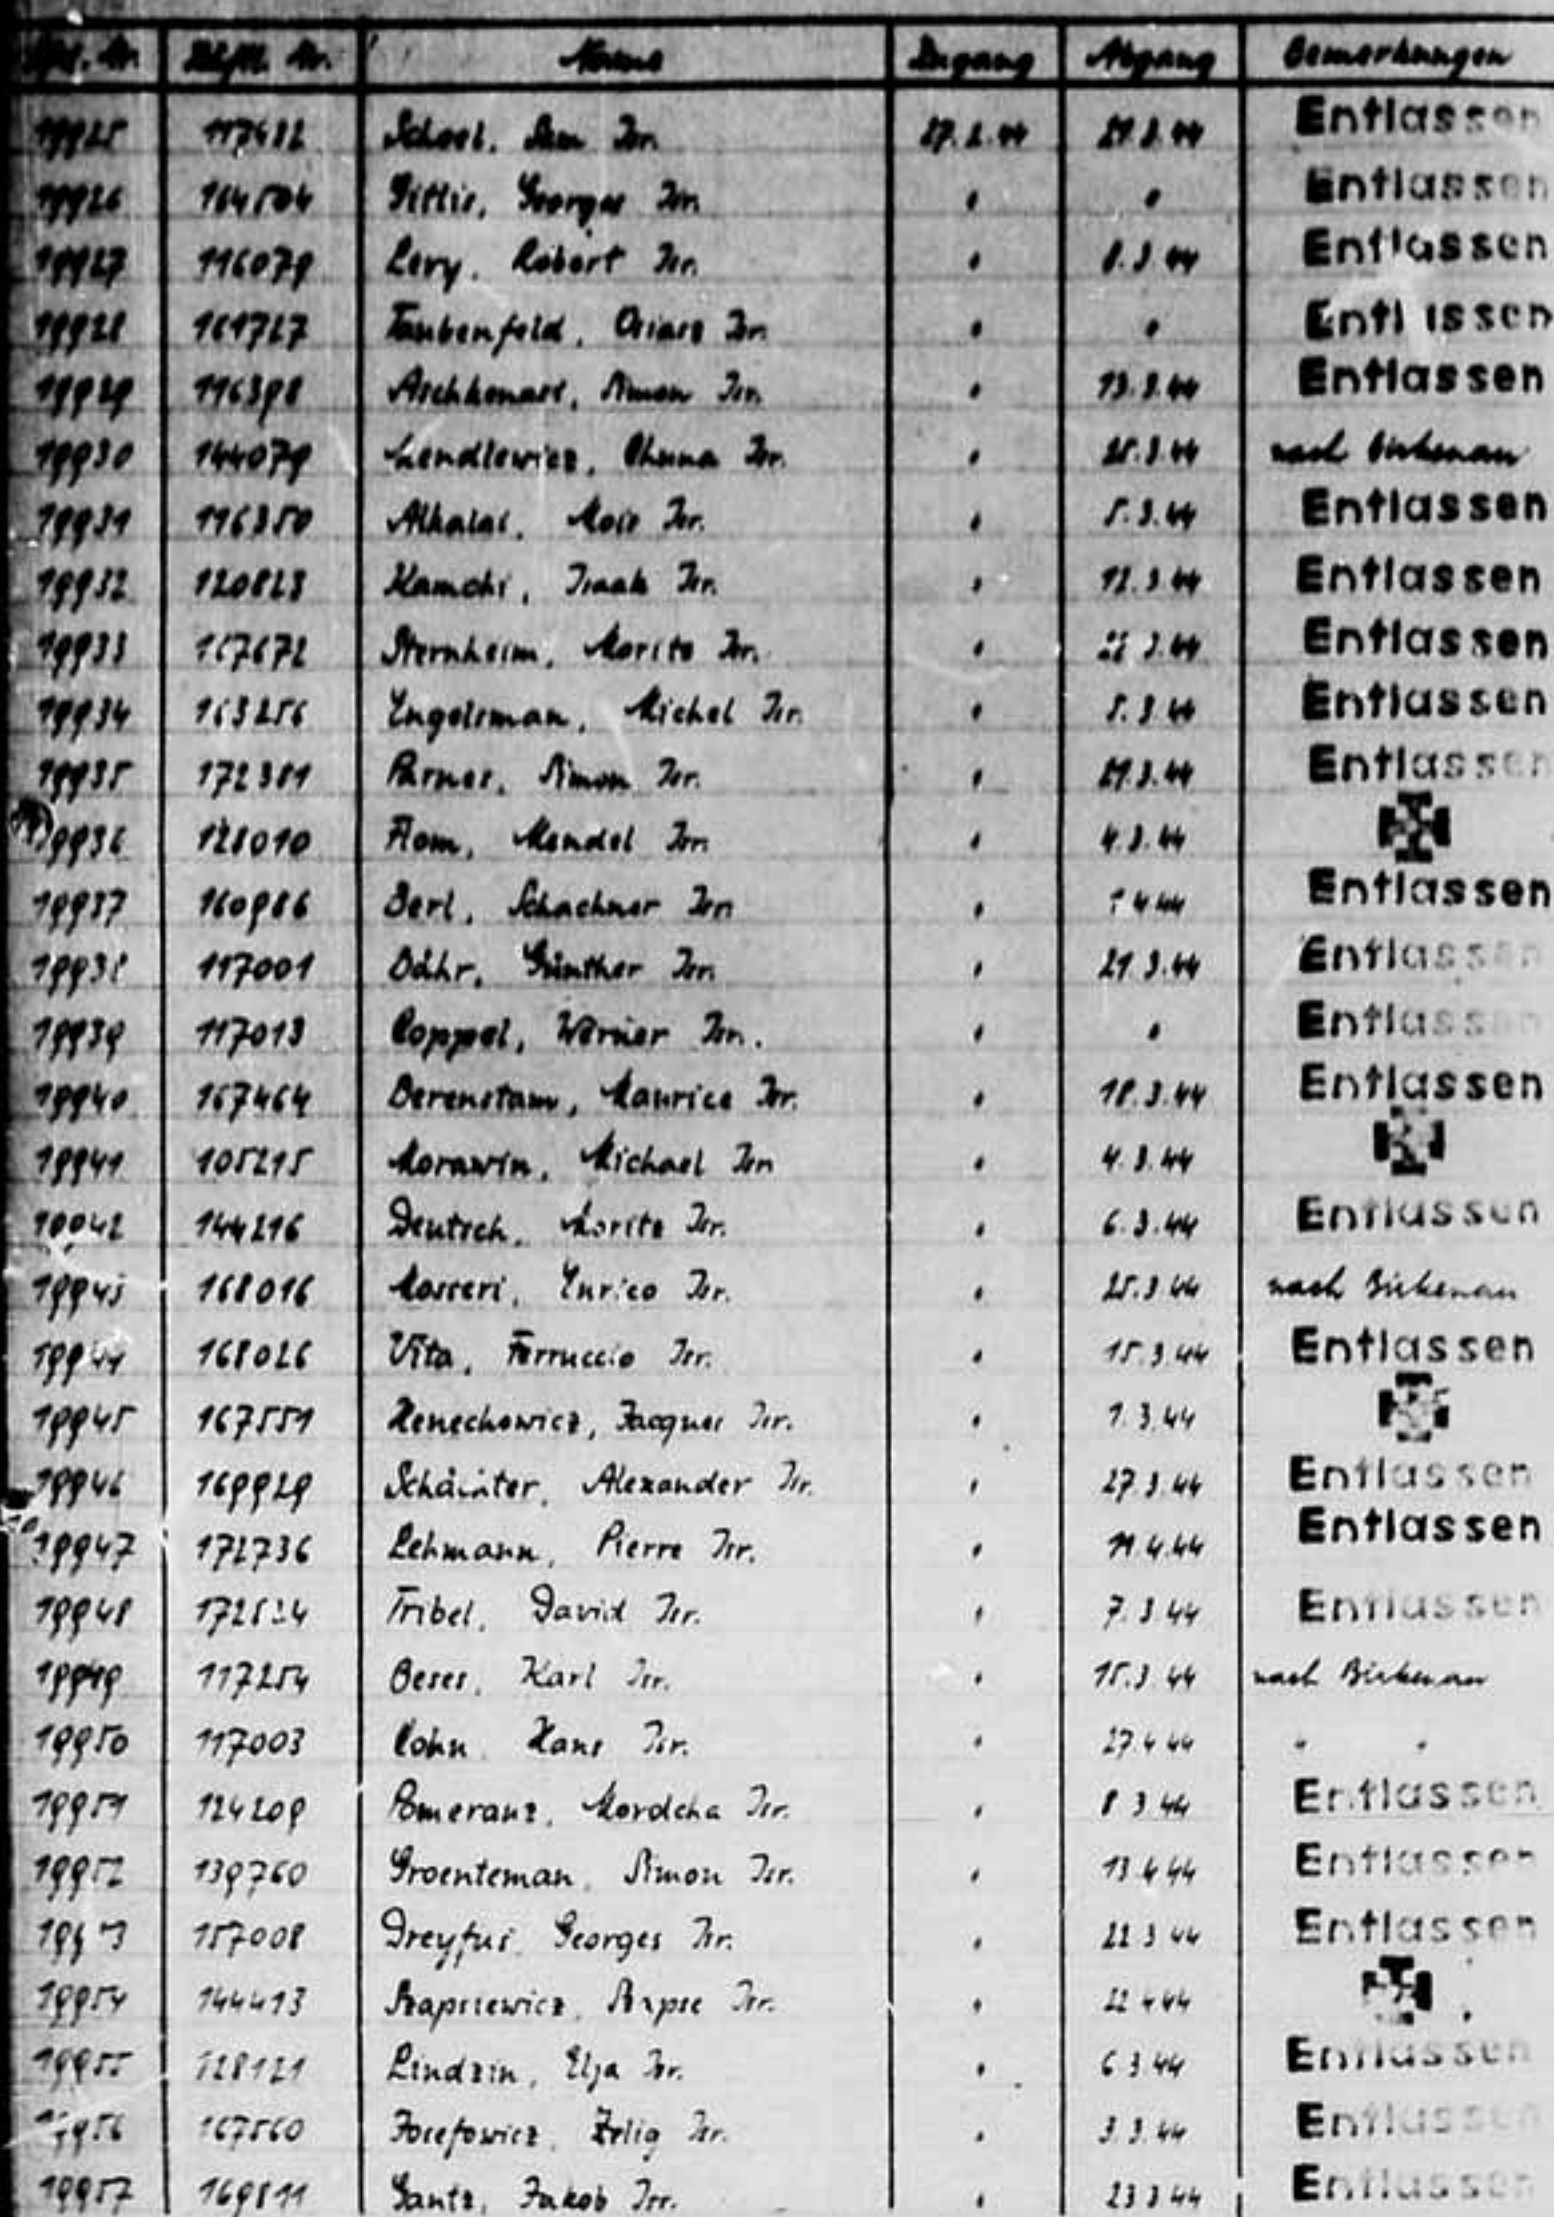 Häftl. Nr. Name Zugang Abgang Bemerkungen
19925 117432 Isr. 27.2.44 21.3.44 Entlassen
19926 164504 Gittis, Georges Isr. " " Entlassen
19927 116079 Levy, Robert Isr. " 8.3.44 Entlassen
19928 161727 Taubenfeld, Isr. " " Entlassen
19929 116398 Simon Isr. " 13.3.44 Entlassen
19930 144079 Mendlewicz, Isr. " 25.3.44 nach Birkenau
19931 116350 Alkalai, Isr. " 5.3.44 Entlassen
19932 120823 Kamchi, Isaak Isr. " 12.3.44 Entlassen
19933 167672 Sternheim, Moritz Isr. " 3.44 Entlassen
19934 163256 Engelsman, Michel Isr. " 5.3.44 Entlassen
19935 172381 Parnes, Simon Isr. " 21.3.44 Entlassen
19936 128010 Flom, Mendel Isr. " 4.3.44
19937 160986 Berl, Schachner Isr. " 4 44 Entlassen
19938 117001 Bähr, Günther Isr. " 21.3.44 Entlassen
19939 117013 Coppel, Werner Isr. " " Entlassen
19940 167464 Berenstam, Maurice Isr. " 18.3.44 Entlassen
19941 105215 Morawin, Michael Isr. " 4.3.44
144216 Deutsch, Moritz Isr. " 6.3.44 Entlassen
19943 168016 Enrico Isr. " 25.3.44 nach Birkenau
19944 168026 Vita, Ferruccio Isr. " 15.3.44 Entlassen
19945 167551 Henechowicz, Jacques Isr. " 1.3.44
19946 169929 Alexander Isr. " 27.3.44 Entlassen
19947 172736 Lehmann, Pierre Isr. " 11.4.44 Entlassen
19948 Tribel, David Isr. " 7.3.44 Entlassen
19949 117254 Beses, Karl Isr. " 15.3.44 nach Birkenau
19950 117003 Cohn Hans Isr. " 27.4.44 " "
19951 124209 Pomeranz, Mordcha Isr. " 8 3 44 Entlassen
19952 139760 Groenteman, Simon Isr. " 13 4 44 Entlassen
157008 Dreyfus Georges Isr. " 22 3 44 Entlassen
19954 144413 Szapsiewicz, Isr. " 22 4 44
19955 128121 Lindzin, Elja Isr. " 6 3 44 Entlassen
167560 Josefowicz, Zelig Isr. " 3.3.44 Entlassen
19957 169811 Gantz, Jakob Isr. " 23 3 44 Entlassen